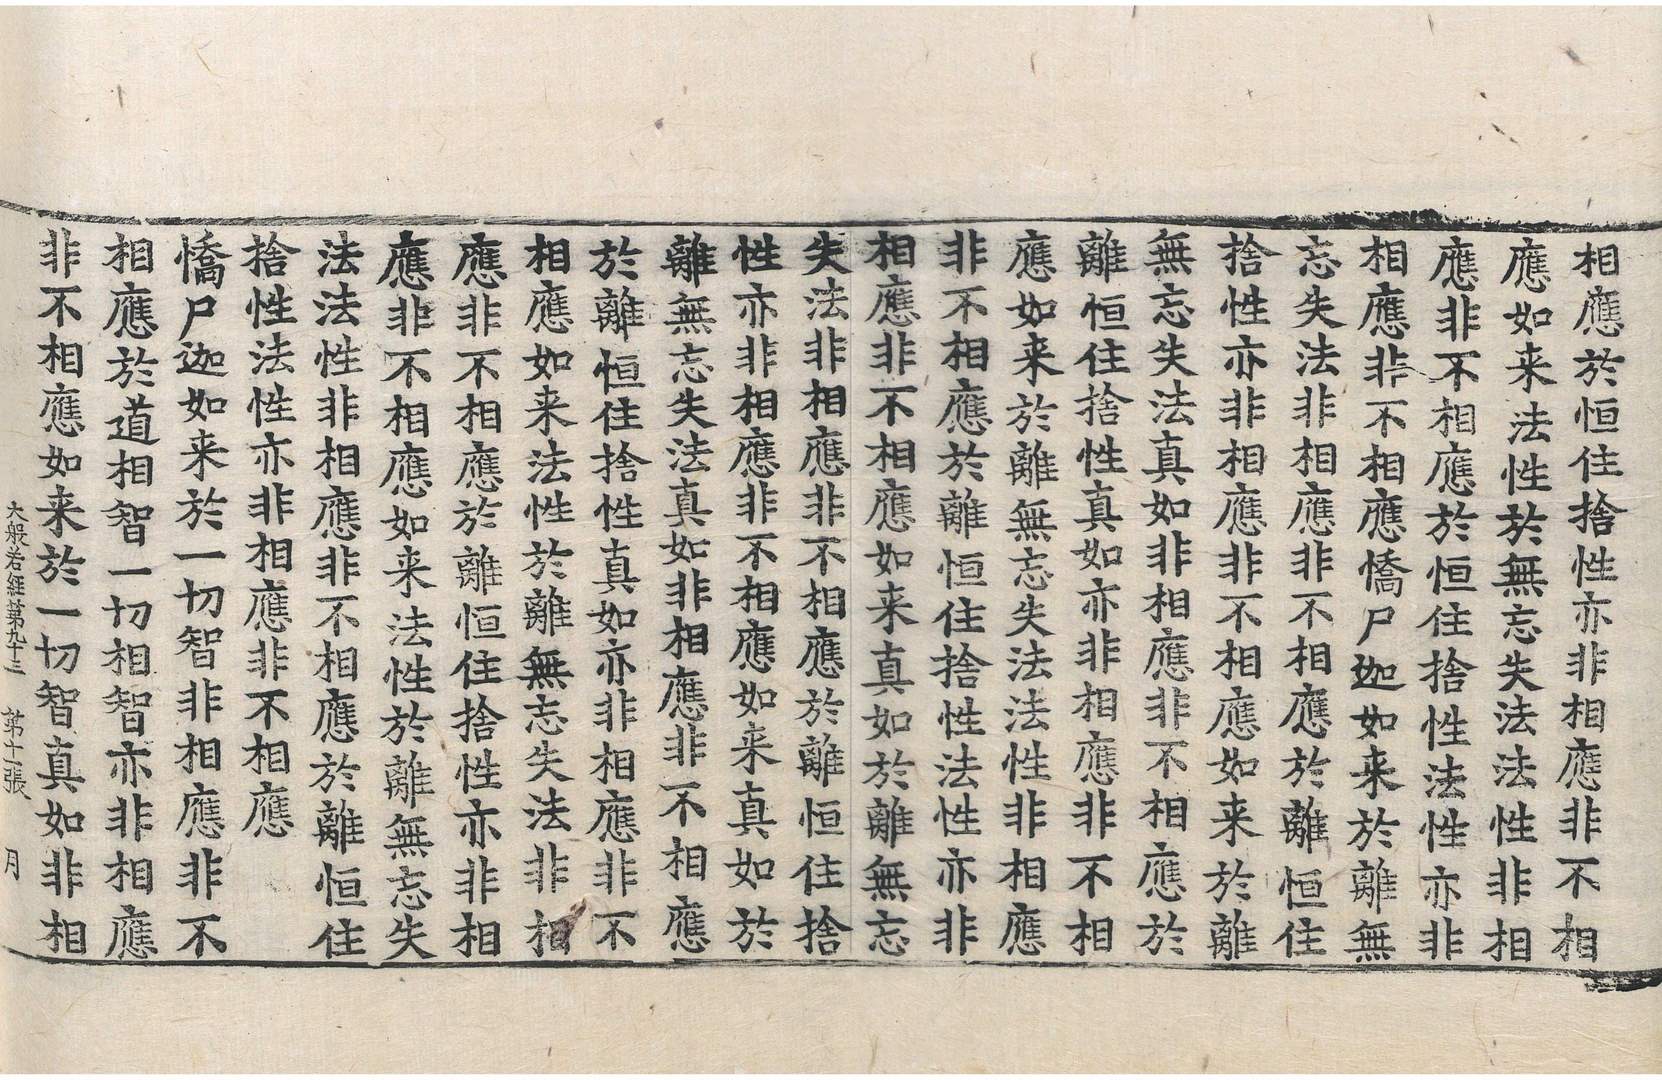 相應於恒住捨性亦非相應非不相
應如来法性於無忘失法法性非相
應非不相應於恒住捨性法性亦非
相應非不相應憍尸迦如来於離無
忘失法非相應非不相應於離恒住
捨性亦非相應非不相應如来於離
無忘失法真如非相應非不相應於
離恒住捨性真如亦非相應非不相
應如来於離無忘失法法性非相應
非不相應於離恒住捨性法性亦非
相應非不相應如来真如於離無忘
失法非相應非不相應於離恒住捨
性亦非相應非不相應如来真如於
離無忘失法真如非相應非不相應
於離恒住捨性真如亦非相應非不
相應如来法性於離無忘失法非相
應非不相應於離恒住捨性亦非相
應非不相應如来法性於離無忘失
法法性非相應非不相應於離恒住
捨性法性亦非相應非不相應
憍尸迦如来於一切智非相應非不
相應於道相智一切相智亦非相應
非不相應如来於一切智真如非相
大般若經第九十三 第十一張 月